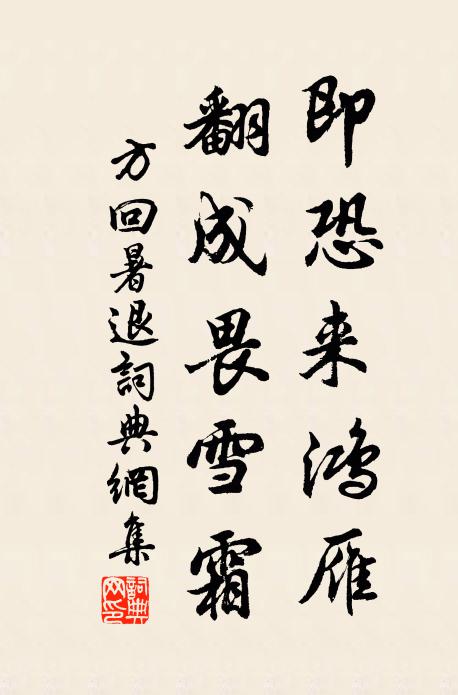 即恐来鸿雁
翻成畏雪霜
方回暑退詞典網集
詞典網印